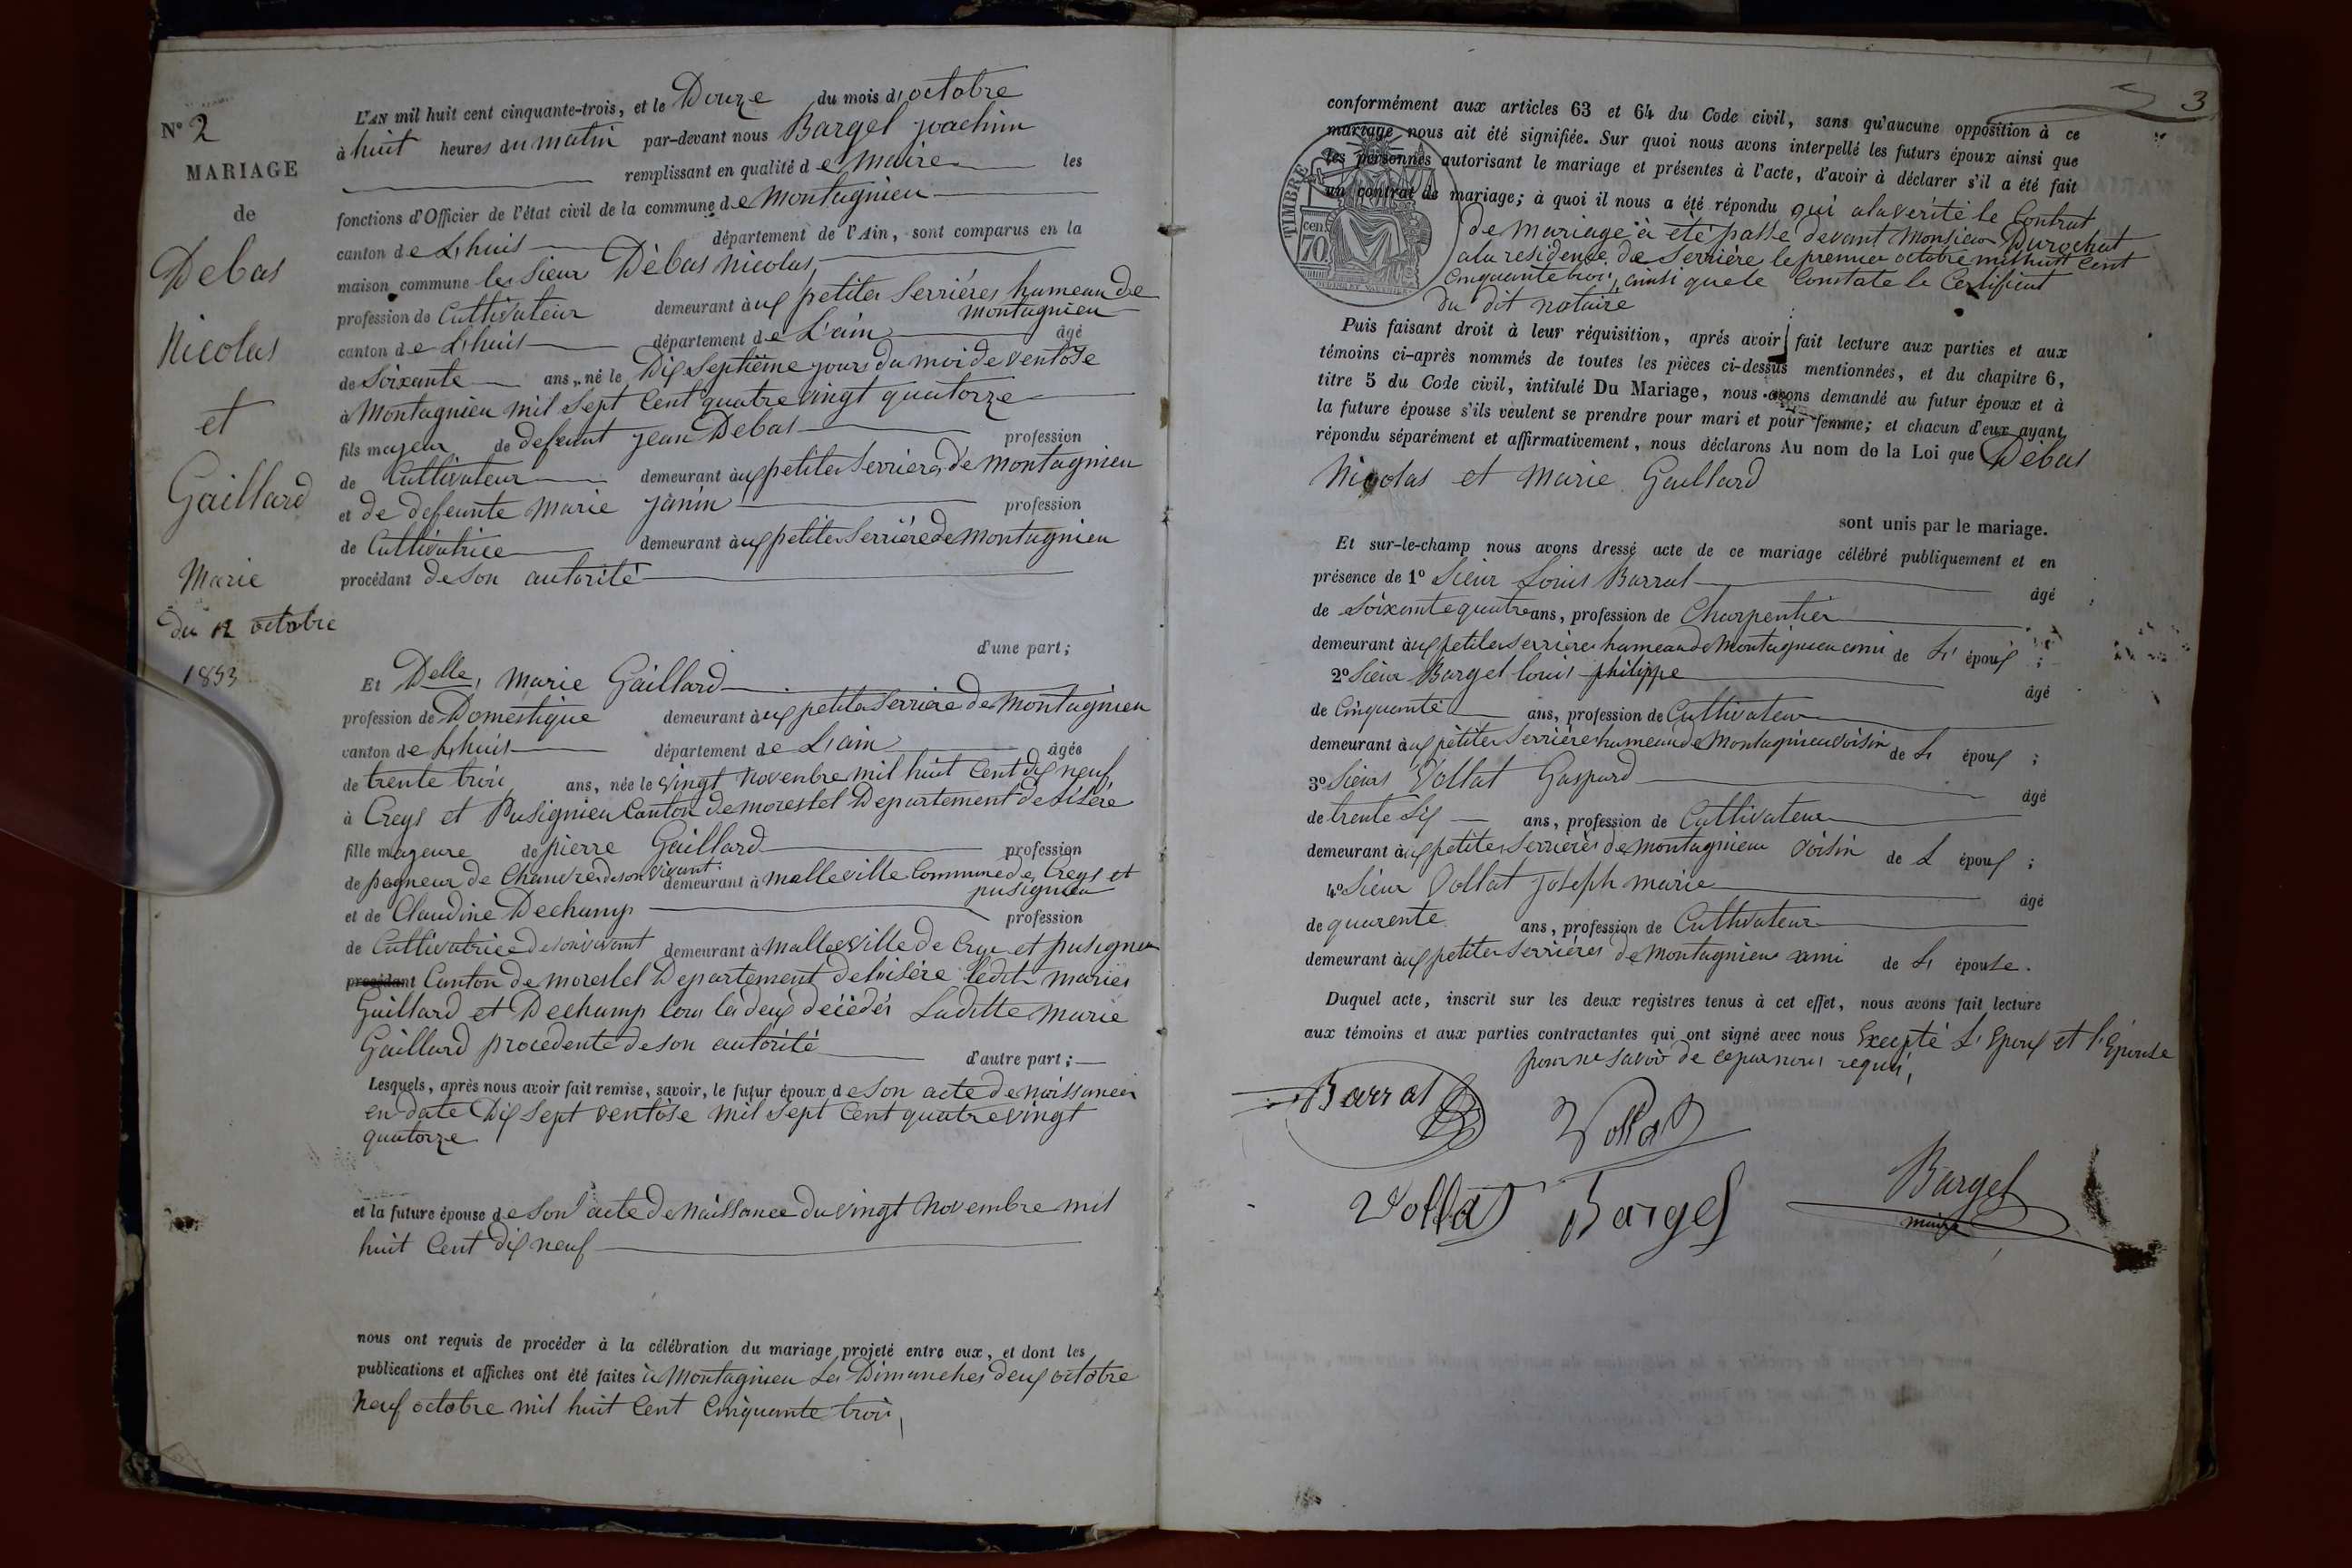 N° 2
MARIAGE
de
Debas
Nicolas
et
Gaillard
Marie
du 12 octobre
1853
L'AN mil huit cent cinquante-trois, et le Douze du mois d'octobre
à huit heures du matin par-devant nous Bargel joachim
remplissant en qualité de Maire les
fonctions d'Officier de l'état civil de la commune de Montagnieu
canton de Lhuis département de l'Ain, sont comparus en la
maison commune les Sieur Débas nicolas,
profession de Cultivateur demeurant àux petites Serriéres hameau de
montagnieu
canton de Lhuis département de L'ain âgé
de Soixante ans, né le Dix Septième jours du moi de ventôse
à Montagnieu mil Sept Cent quatre vingt quatorze
fils majeur de defeunt jean Debas profession
de Cultivateur demeurant àux petites Serrieres de Montagnieu
et de defeunte Marie janin profession
de Cultivatrice demeurant àux petites Serriére de Montagnieu
procédant de Son autorité
d'une part;
Et Delle, Marie Gaillard
profession de Domestique demeurant àux petites Serriére de Montagnieu
canton de Lhuis département de L'ain âgée
de trente trois ans, née le vingt Novenbre mil huit Cent dix neuf,
à Creys et Pusignieu Canton de morestel Departement de Lisére
fille majeure de pierre Gaillard profession
de pegneur de Chanvre de son vivant demeurant à malleville Commune de Creys et
pusignieu
et de Claudine Dechamp profession
de Cultivatrice de son vivant demeurant à Malleville de Creys et pusignieu
procédant Canton de morestel Departement de loisére ledit mariés
Gaillard et Dechamp tous les deux décédés Laditte Marie
Gaillard procedente de son autorité d'autre part;
Lesquels, après nous avoir fait remise, savoir, le futur époux de Son acte de Naissances
en date Dix Sept ventôse mil Sept Cent quatre vingt
quatorze
et la future épouse de Son acte de Naissance du vingt Novembre mil
huit Cent dix neuf
nous ont requis de procéder à la célébration du mariage projeté entre eux, et dont les
publications et affiches ont été faites à Montagnieu Les Dimanches deux octobre
Neuf octobre mil huit Cent Cinquante trois,
3
conformément aux articles 63 et 64 du Code civil, sans qu'aucune opposition à ce
mariage nous ait été signifiée. Sur quoi nous avons interpellé les futurs époux ainsi que
les personnes autorisant le mariage et présentes à l'acte, d'avoir à déclarer s'il a été fait
un contrat de mariage; à quoi il nous a été répondu qui a la vérité le Contrat
TIMBRE
70 cen.
de Mariage à été passé devant Monsieur Durochat
a la residence de Serriére le premier octobre mil huit Cent
Cinquante trois, ainsi que le Constate le Certificat
du dit notaire
Puis faisant droit à leur réquisition, après avoir fait lecture aux parties et aux
témoins ci-après nommés de toutes les pièces ci-dessus mentionnées, et du chapitre 6,
titre 5 du Code civil, intitulé Du Mariage, nous avons demandé au futur époux et à
la future épouse s'ils veulent se prendre pour mari et pour femme; et chacun d'eux ayant
répondu séparément et affirmativement, nous déclarons Au nom de la Loi que Debas
Nicolas et Marie Gaillard
sont unis par le mariage.
Et sur-le-champ nous avons dressé acte de ce mariage célébré publiquement et en
présence de 1° Sieur Louis Barrat âgé
de Soixante quatre ans, profession de Charpentier
demeurant àux petites Serriéres hameau de Montagnieu ami de L' époux ;
2° Sieur Bargel louis philippe âgé
de Cinquante ans, profession de Cultivateur
demeurant àux petites Serriére hameau de Montagnieu voisin de L' époux ;
3° Sieurs Vollat Gaspard âgé
de trente Six ans, profession de Cultivateur
demeurant àux petites Serrières de Montagnieu voisin de L époux ;
4° Sieur Vollat joseph marie âgé
de quarente ans, profession de Cultivateur
demeurant àux petites Serriéres de Montagnieu ami de L' épouse.
Duquel acte, inscrit sur les deux registres tenus à cet effet, nous avons fait lecture
aux témoins et aux parties contractantes qui ont signé avec nous Excepté L' Epoux et l'Epouse
pour ne savoir de ce par nous requis,
Barrat
Vollat
Vollat Bargel
Bargel
maire